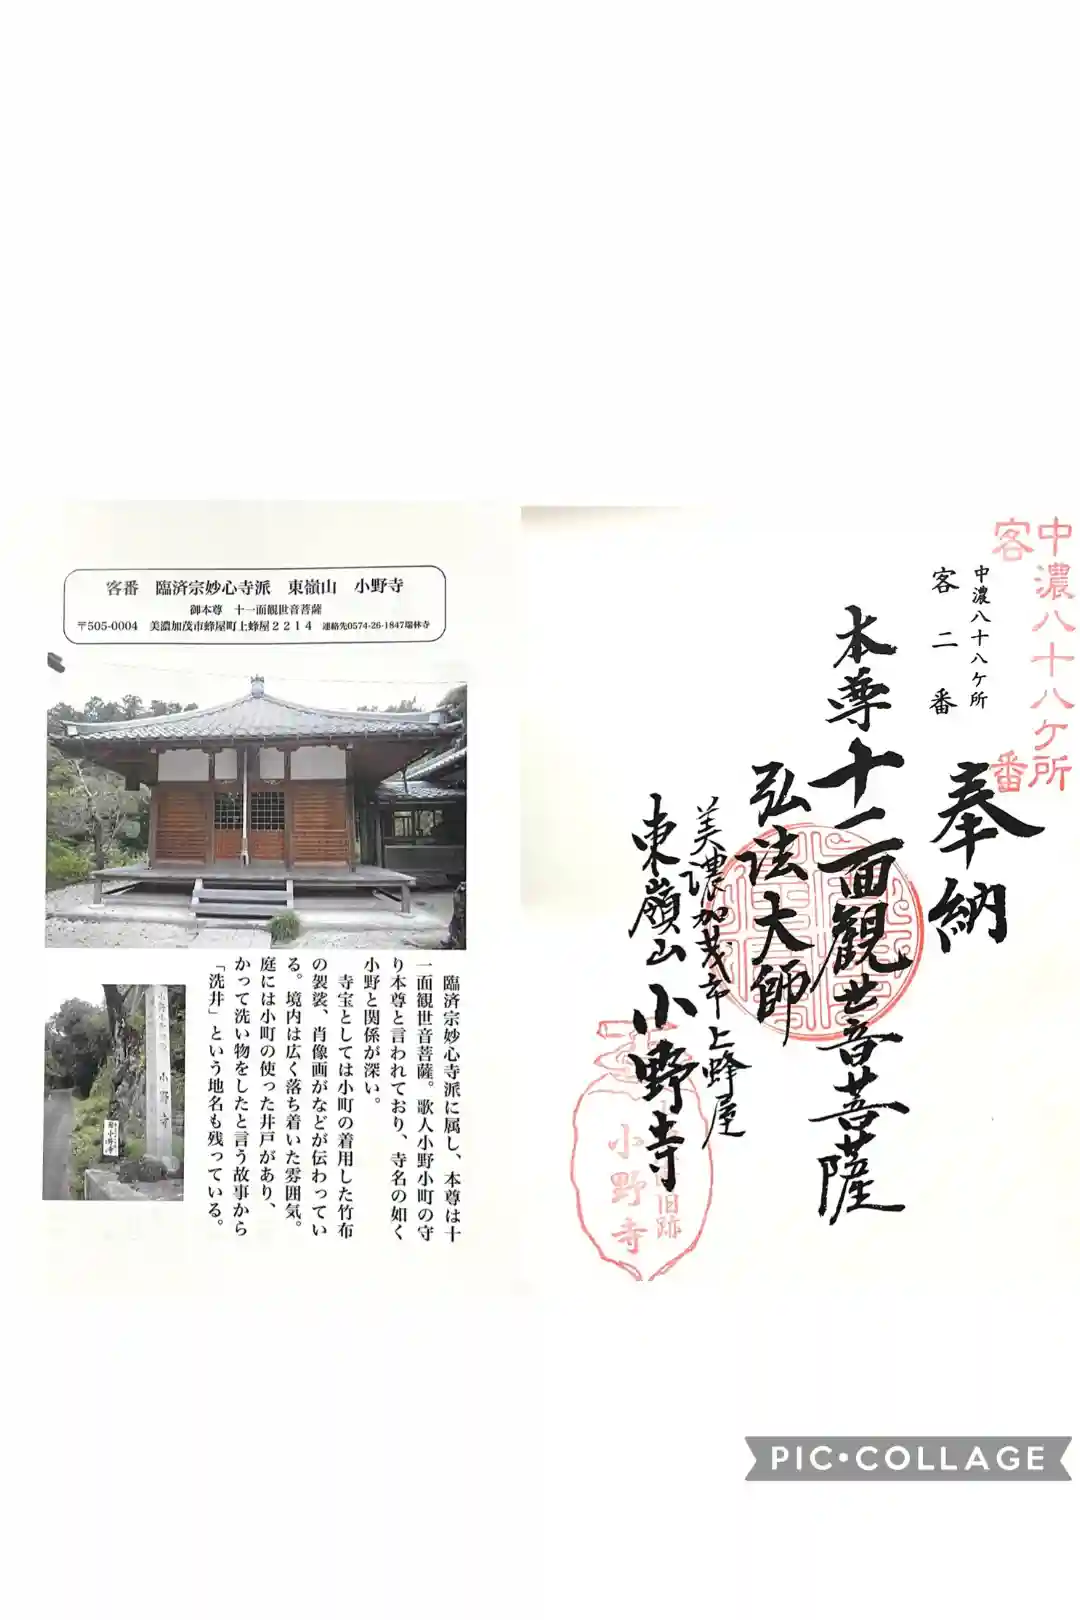 客番　臨済宗妙心寺派　東嶺山　小野寺
御本尊　十一面観世音菩薩
〒505-0004　美濃加茂市蜂屋町上蜂屋2214　連絡先0574-26-1847瑞林寺
臨済宗妙心寺派に属し、本尊は十
一面観世音菩薩。歌人小野小町の守
り本尊と言われており、寺名の如く
小野と関係が深い。
寺宝としては小町の着用した竹布
の袈裟、肖像画がなどが伝わってい
る。境内は広く落ち着いた雰囲気。
庭には小町の使った井戸があり、
かって洗い物をしたと言う故事から
「洗井」という地名も残っている。
小野寺
中濃八十八ケ所
客　番
中濃八十八ケ所
客二番
奉納
本尊十一面観世音菩薩
弘法大師
美濃加茂市上蜂屋
東嶺山小野寺
旧跡
小野寺
PIC•COLLAGE